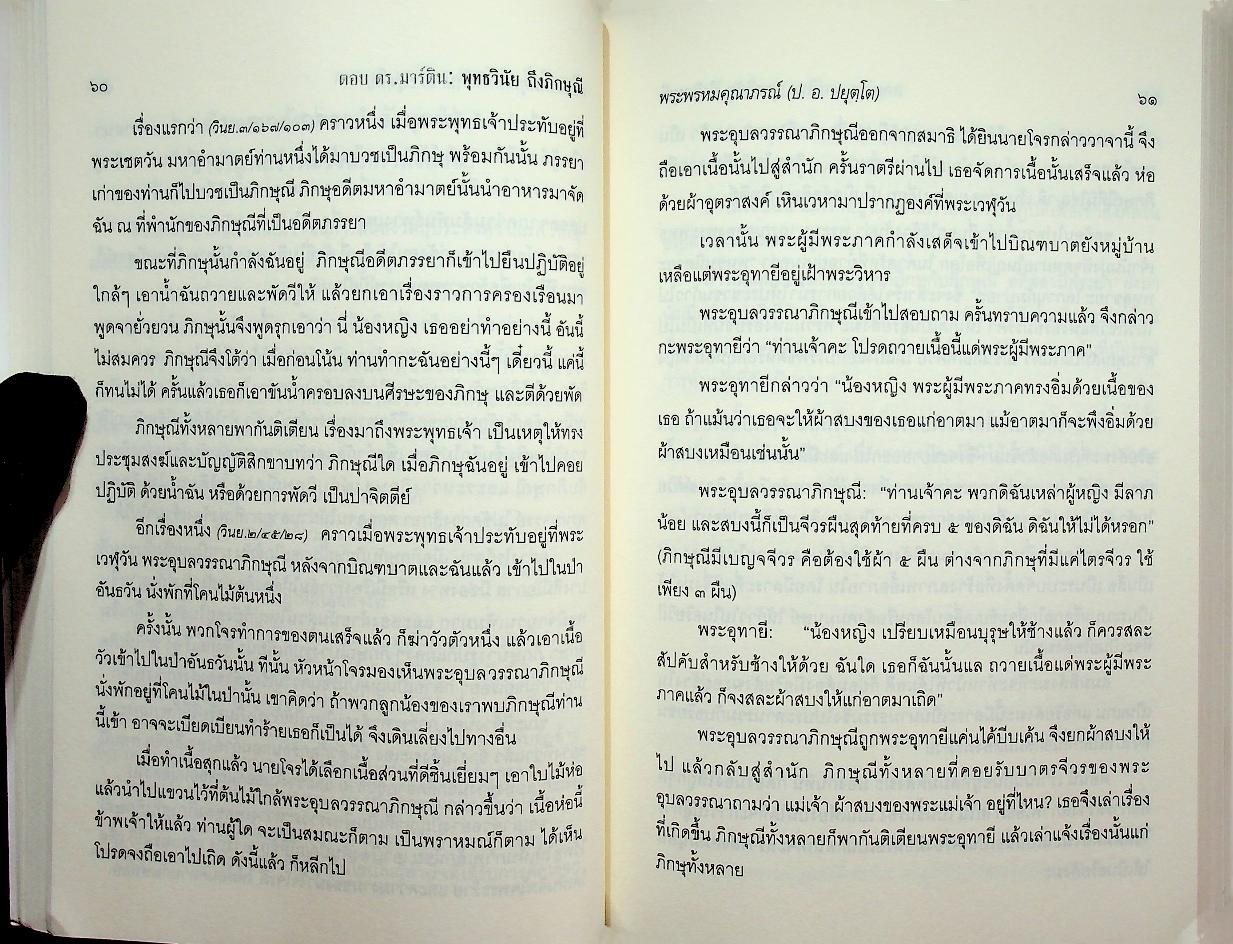 ๖๐
ตอบ ดร.มาร์ติน: พุทธวินัย ถึงภิกษุณี
เรื่องแรกว่า (วินย.๓/๑๖๗/๑๐๓) คราวหนึ่ง เมื่อพระพุทธเจ้าประทับอยู่ที่
พระเชตวัน มหาอำมาตย์ท่านหนึ่งได้มาบวชเป็นภิกษุ พร้อมกันนั้น ภรรยา
เก่าของท่านก็ไปบวชเป็นภิกษุณี ภิกษุอดีตมหาอำมาตย์นั้นนำอาหารมาจัด
ฉัน ณ ที่พำนักของภิกษุณีที่เป็นอดีตภรรยา
ขณะที่ภิกษุนั้นกำลังฉันอยู่ ภิกษุณีอดีตภรรยาก็เข้าไปยืนปฏิบัติอยู่
ใกล้ๆ เอาน้ำฉันถวายและพัดวีให้ แล้วยกเอาเรื่องราวการครองเรือนมา
พูดจายั่วยวน ภิกษุนั้นจึงพูดรุกเอาว่า นี่ น้องหญิง เธออย่าทำอย่างนี้ อันนี้
ไม่สมควร ภิกษุณีจึงโต้ว่า เมื่อก่อนโน้น ท่านทำกะฉันอย่างนี้ๆ เดี๋ยวนี้ แค่นี้
ก็ทนไม่ได้ ครั้นแล้วเธอก็เอาขันน้ำครอบลงบนศีรษะของภิกษุ และตีด้วยพัด
ภิกษุณีทั้งหลายพากันติเตียน เรื่องมาถึงพระพุทธเจ้า เป็นเหตุให้ทรง
ประชุมสงฆ์และบัญญัติสิกขาบทว่า ภิกษุณีใด เมื่อภิกษุฉันอยู่ เข้าไปคอย
ปฏิบัติ ด้วยน้ำฉัน หรือด้วยการพัดวี เป็นปาจิตตีย์
อีกเรื่องหนึ่ง (วินย.๒/๔๕/๒๘) คราวเมื่อพระพุทธเจ้าประทับอยู่ที่พระ
เวฬุวัน พระอุบลวรรณาภิกษุณี หลังจากบิณฑบาตและฉันแล้ว เข้าไปในป่า
อันธวัน นั่งพักที่โคนไม้ต้นหนึ่ง
ครั้งนั้น พวกโจรทำการของตนเสร็จแล้ว ก็ฆ่าวัวตัวหนึ่ง แล้วเอาเนื้อ
วัวเข้าไปในป่าอันธวันนั้น ทีนั้น หัวหน้าโจรมองเห็นพระอุบลวรรณาภิกษุณี
นั่งพักอยู่ที่โคนไม้ในป่านั้น เขาคิดว่า ถ้าพวกลูกน้องของเราพบภิกษุณีท่าน
นี้เข้า อาจจะเบียดเบียนทำร้ายเธอก็เป็นได้ จึงเดินเลี่ยงไปทางอื่น
เมื่อทำเนื้อสุกแล้ว นายโจรได้เลือกเนื้อส่วนที่ดีชิ้นเยี่ยมๆ เอาใบไม้ห่อ
แล้วนำไปแขวนไว้ที่ต้นไม้ใกล้พระอุบลวรรณาภิกษุณี กล่าวขึ้นว่า เนื้อห่อนี้
ข้าพเจ้าให้แล้ว ท่านผู้ใด จะเป็นสมณะก็ตาม เป็นพราหมณ์ก็ตาม ได้เห็น
โปรดจงถือเอาไปเถิด ดังนี้แล้ว ก็หลีกไป
พระพรหมคุณาภรณ์ (ป. อ. ปยุตฺโต)
๖๑
พระอุบลวรรณาภิกษุณีออกจากสมาธิ ได้ยินนายโจรกล่าววาจานี้ จึง
ถือเอาเนื้อนั้นไปสู่สำนัก ครั้นราตรีผ่านไป เธอจัดการเนื้อนั้นเสร็จแล้ว ห่อ
ด้วยผ้าอุตราสงค์ เหินเวหามาปรากฏองค์ที่พระเวฬุวัน
เวลานั้น พระผู้มีพระภาคกำลังเสด็จเข้าไปบิณฑบาตยังหมู่บ้าน
เหลือแต่พระอุทายีอยู่เฝ้าพระวิหาร
พระอุบลวรรณาภิกษุณีเข้าไปสอบถาม ครั้นทราบความแล้ว จึงกล่าว
กะพระอุทายีว่า “ท่านเจ้าคะ โปรดถวายเนื้อนี้แด่พระผู้มีพระภาค”
พระอุทายีกล่าวว่า “น้องหญิง พระผู้มีพระภาคทรงอิ่มด้วยเนื้อของ
เธอ ถ้าแม้นว่าเธอจะให้ผ้าสบงของเธอแก่อาตมา แม้อาตมาก็จะพึงอิ่มด้วย
ผ้าสบงเหมือนเช่นนั้น”
พระอุบลวรรณาภิกษุณี: “ท่านเจ้าคะ พวกดิฉันเหล่าผู้หญิง มีลาภ
น้อย และสบงนี้ก็เป็นจีวรผืนสุดท้ายที่ครบ ๕ ของดิฉัน ดิฉันให้ไม่ได้หรอก”
(ภิกษุณีมีเบญจจีวร คือต้องใช้ผ้า ๕ ผืน ต่างจากภิกษุที่มีแค่ไตรจีวร ใช้
เพียง ๓ ผืน)
พระอุทายี: “น้องหญิง เปรียบเหมือนบุรุษให้ช้างแล้ว ก็ควรสละ
สัปคับสำหรับช้างให้ด้วย ฉันใด เธอก็ฉันนั้นแล ถวายเนื้อแด่พระผู้มีพระ
ภาคแล้ว ก็จงสละผ้าสบงให้แก่อาตมาเถิด”
พระอุบลวรรณาภิกษุณีถูกพระอุทายีแค่นไค้บีบเค้น จึงยกผ้าสบงให้
ไป แล้วกลับสู่สำนัก ภิกษุณีทั้งหลายที่คอยรับบาตรจีวรของพระ
อุบลวรรณาถามว่า แม่เจ้า ผ้าสบงของพระแม่เจ้า อยู่ที่ไหน? เธอจึงเล่าเรื่อง
ที่เกิดขึ้น ภิกษุณีทั้งหลายก็พากันติเตียนพระอุทายี แล้วเล่าแจ้งเรื่องนั้นแก่
ภิกษุทั้งหลาย